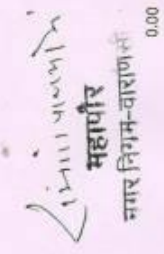 महापौर
नगर निगम-वाराणसी
0.00